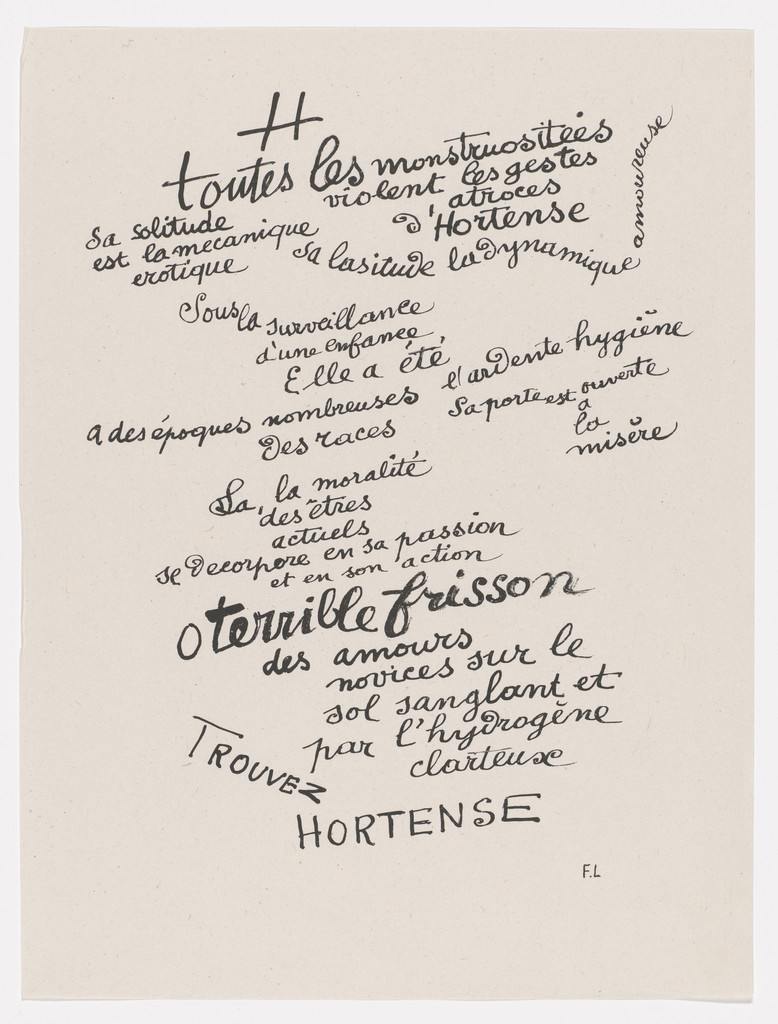 H
toutes les monstruositées
violent les gestes
atroces
d'Hortense
Sa solitude
est la mecanique
erotique
Sa lasitude la dynamique
amoureuse
Sous la surveillance
d'une enfance
Elle a été
a des époques nombreuses
l'ardente hygiène
des races
Sa porte est ouverte
a
la
misère
La, la moralité
des êtres
actuels
se decorpore en sa passion
et en son action
O terrible frisson
des amours
novices sur le
sol sanglant et
par l'hydrogène
clarteux
TROUVEZ
HORTENSE
F.L